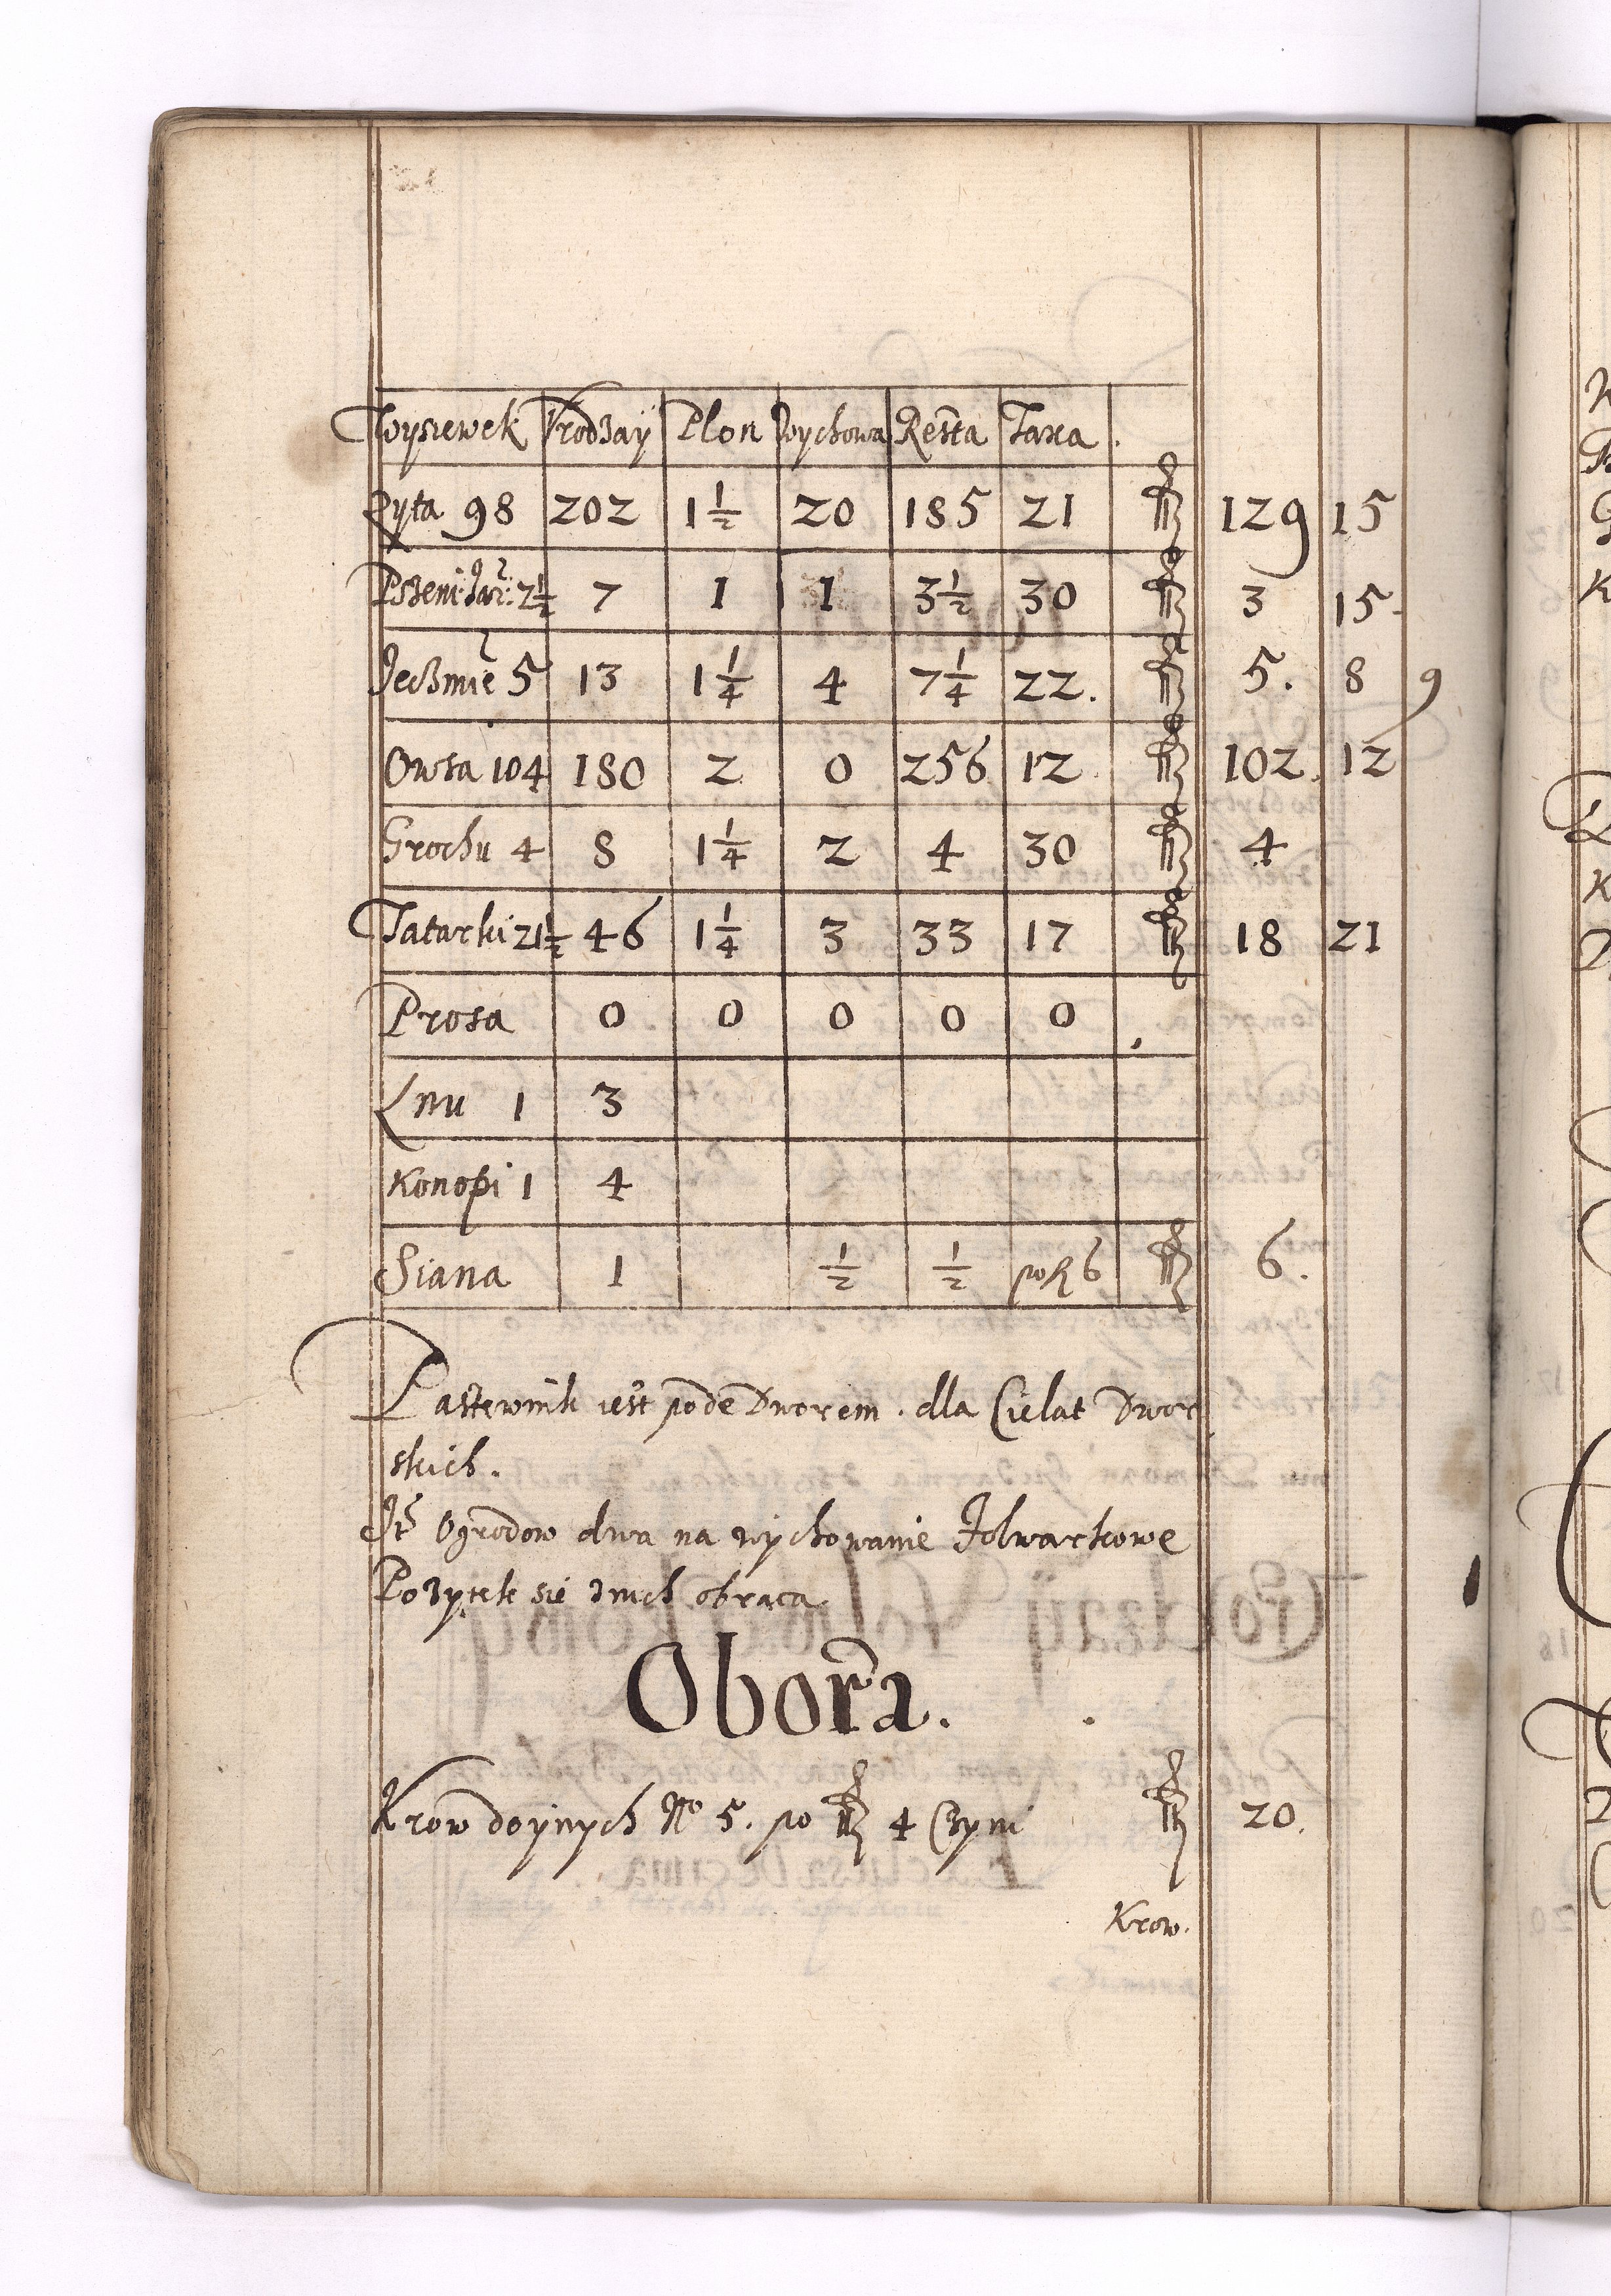 Wysiewek Vrodzaÿ Plon Wychowa Resta Taxa.
Zyta 98 202 1 1/2 20 185 21 129 15
Pszeni: Jar: 2 1/2 7 1 1 3 1/2 30 3 15
Jeczmie 5 13 1 1/4 4 7 1/4 22. 5. 8 9
Owsa 104 180 2 0 256 12 102. 12
Grochu 4 8 1 1/4 2 4 30 4
Tatarki 21 1/2 46 1 1/4 3 33 17 18 21
Prosa 0 0 0 0 0
Lnu 1 3
Konopi 1 4
Siana 1 1/2 1/2 po 6 6.
Pastewnik iest pode Dworem. dla Cielat Dwor
skich.
It Ogrodow dwa na wychowanie Folwarkowe
Pozytek sie znich obraca
Obora.
Krow doÿnych No 5. po 4 Czyni 20.
Krow.